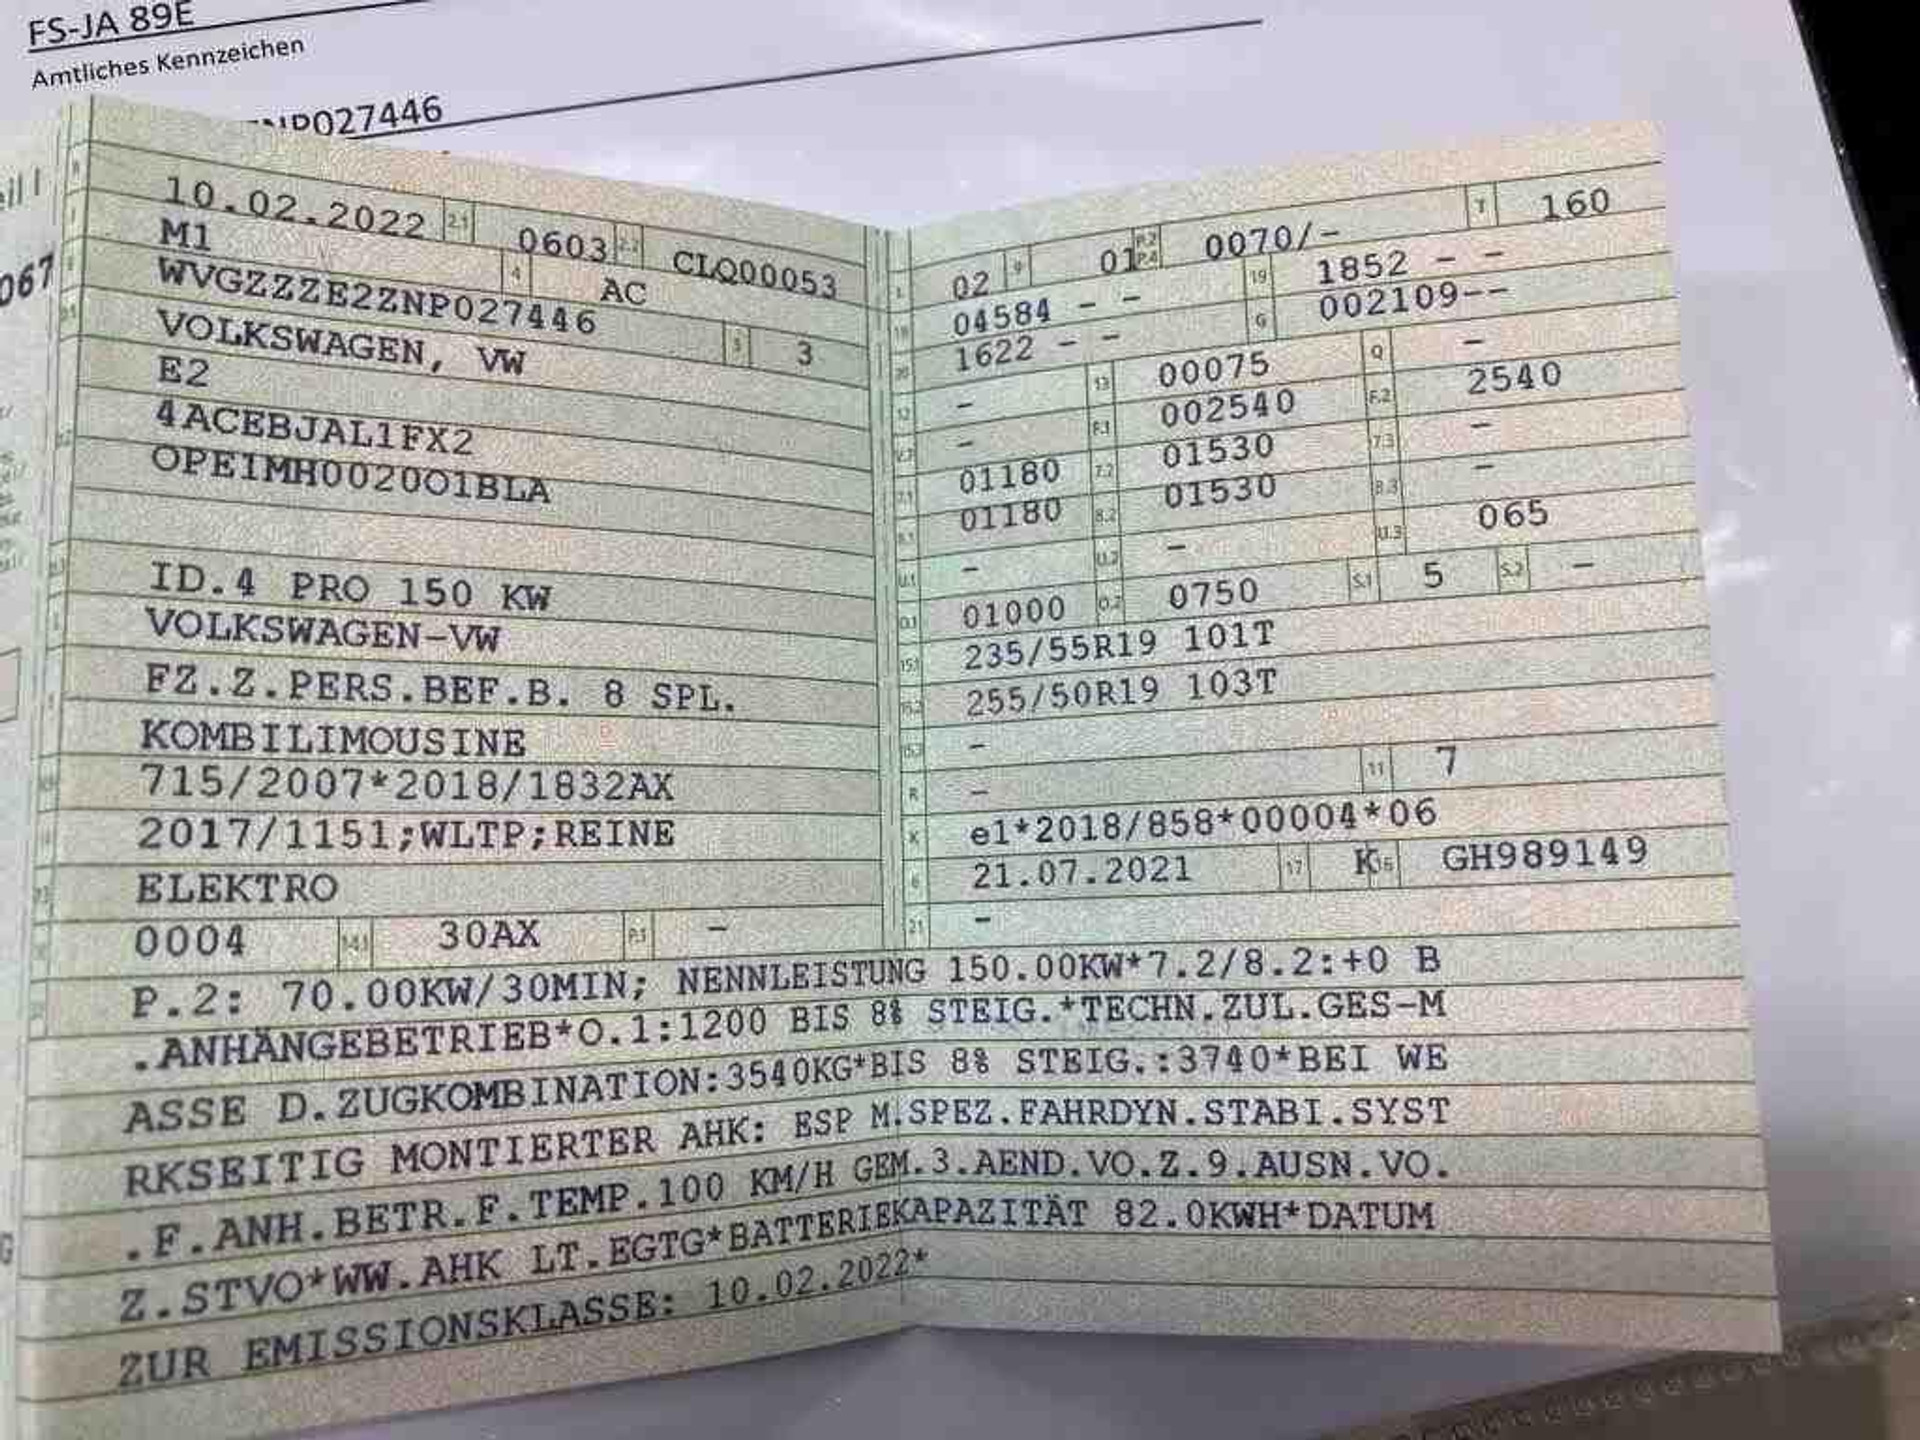 FS-JA 89E
Amtliches Kennzeichen
NP027446
eil I
067
10.02.2022 2.1 0603 2.2 CLQ00053
M1 4 AC
WVGZZZE2ZNP027446 3 3
VOLKSWAGEN, VW
E2
4ACEBJAL1FX2
OPE1MH002001BLA
ID.4 PRO 150 KW
VOLKSWAGEN-VW
FZ.Z.PERS.BEF.B. 8 SPL.
KOMBILIMOUSINE
715/2007*2018/1832AX
2017/1151;WLTP;REINE
ELEKTRO
0004 14.1 30AX P.3 -
L 02 9 01 P.2 P.4 0070/- T 160
18 04584 - - 19 1852 - -
20 1622 - - G 002109--
12 - 13 00075 Q -
V.7 - F.1 002540 F.2 2540
7.1 01180 7.2 01530 7.3 -
8.1 01180 8.2 01530 8.3 -
U.1 - U.2 - U.3 065
O.1 01000 O.2 0750 S.1 5 S.2 -
15.1 235/55R19 101T
15.2 255/50R19 103T
15.3 -
R - 11 7
K e1*2018/858*00004*06
6 21.07.2021 17 K 16 GH989149
21 -
P.2: 70.00KW/30MIN; NENNLEISTUNG 150.00KW*7.2/8.2:+0 B
.ANHÄNGEBETRIEB*O.1:1200 BIS 8% STEIG.*TECHN.ZUL.GES-M
ASSE D.ZUGKOMBINATION:3540KG*BIS 8% STEIG.:3740*BEI WE
RKSEITIG MONTIERTER AHK: ESP M.SPEZ.FAHRDYN.STABI.SYST
.F.ANH.BETR.F.TEMP.100 KM/H GEM.3.AEND.VO.Z.9.AUSN.VO.
Z.STVO*WW.AHK LT.EGTG*BATTERIEKAPAZITÄT 82.0KWH*DATUM
ZUR EMISSIONSKLASSE: 10.02.2022*